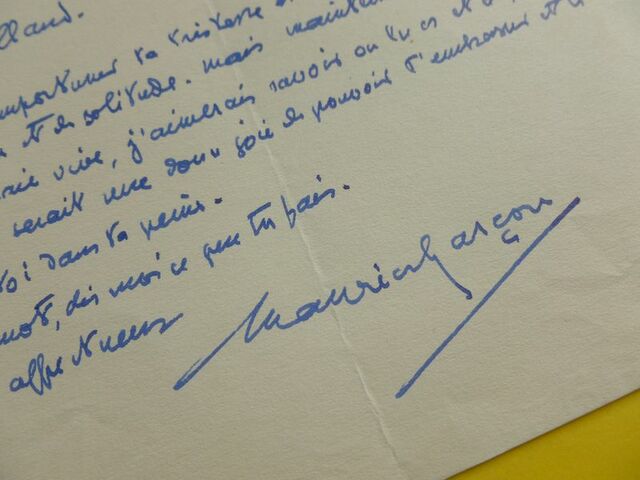 lland.
importuner ta tristesse
et de solitude. mais mainten
vive, j'aimerais savoir où tu es et
serait une douce joie de pouvoir t'embrasser et
toi dans ta peine.
mot, dis moi ce que tu fais.
affectueux Maurice Garçon